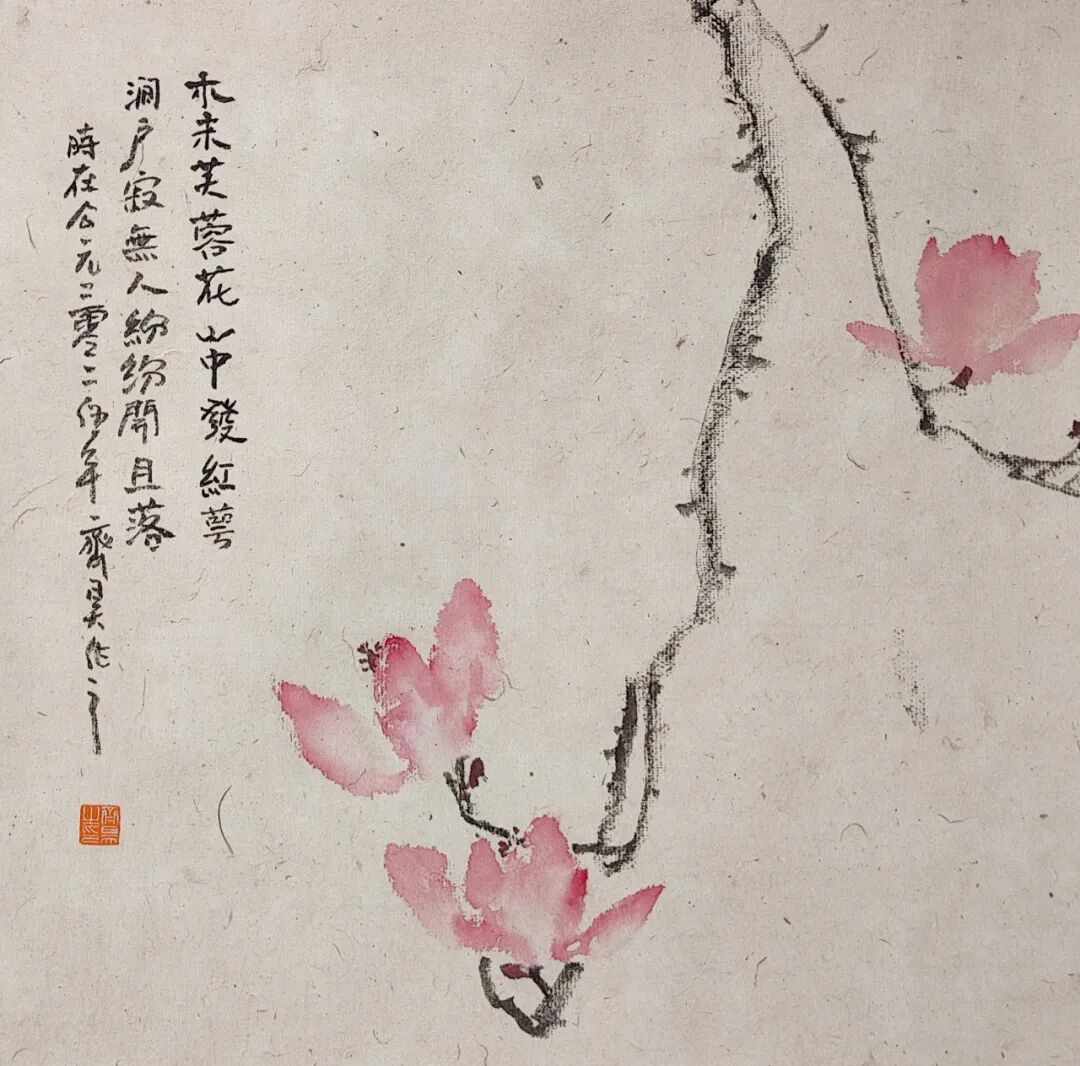 木末芙蓉花山中發紅萼
澗户寂無人紛紛開且落
時在公元二零二二年齊昊作